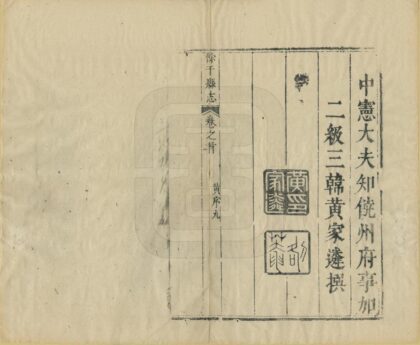 中憲大夫知饒州府事加
二級三韓黃家遴撰
黃印
家遴
餘干縣志
卷之首
黃序九